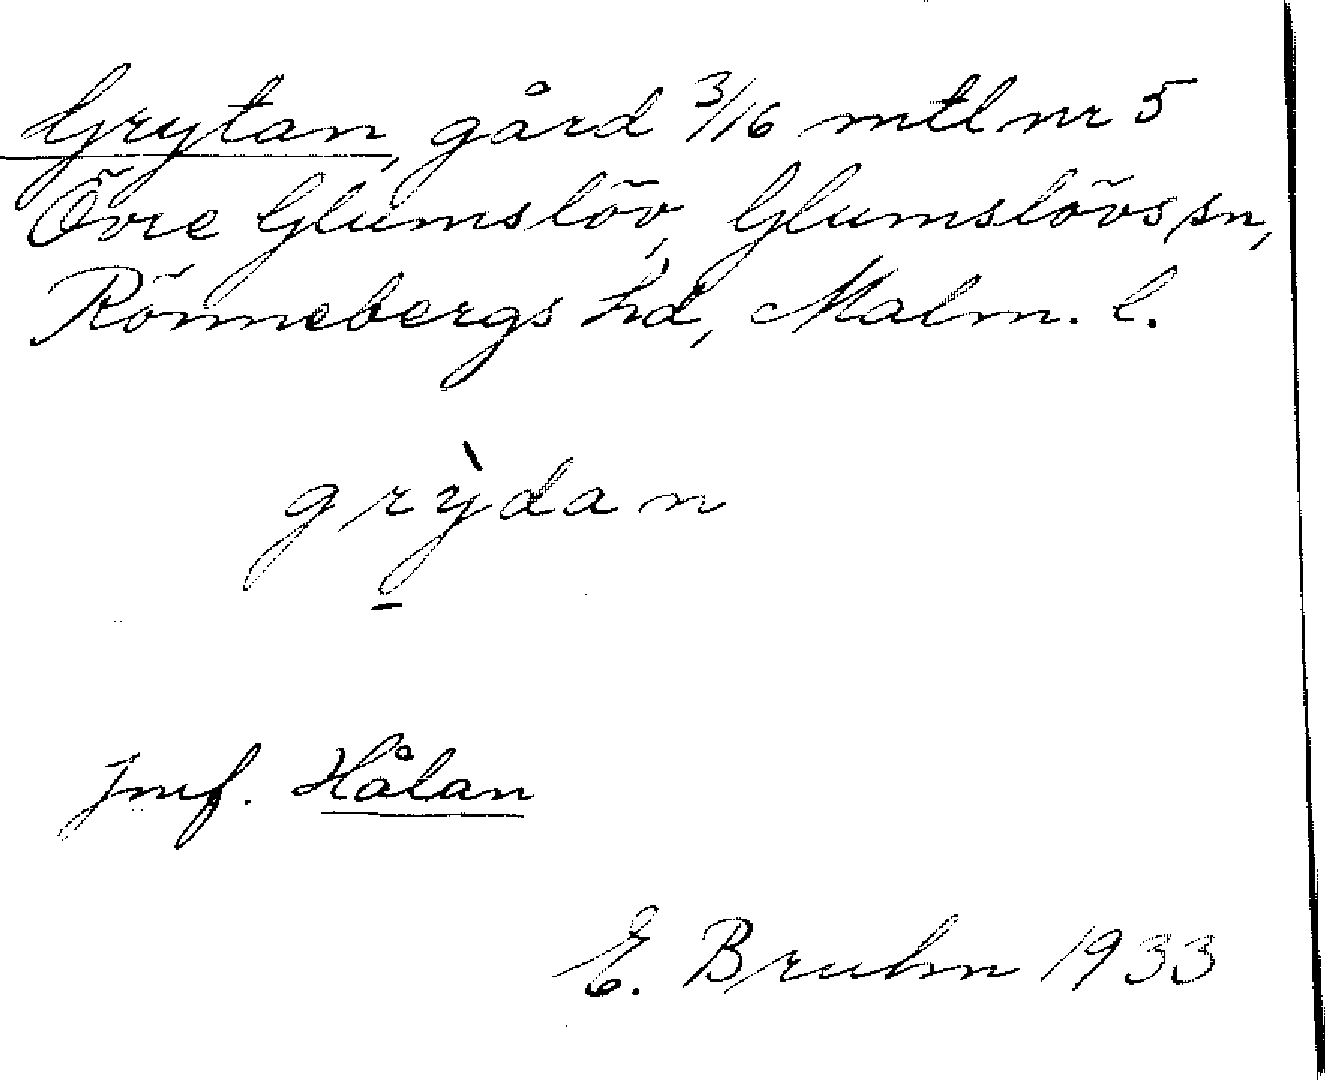 Grytan, gård 3/16 mtl nr 5
Övre Glumslöv, Glumslövs sn,
Rönnebergs hd, Malm. l.
grỳ̠dan
Jmf. Hålan
E. Bruhn 1933